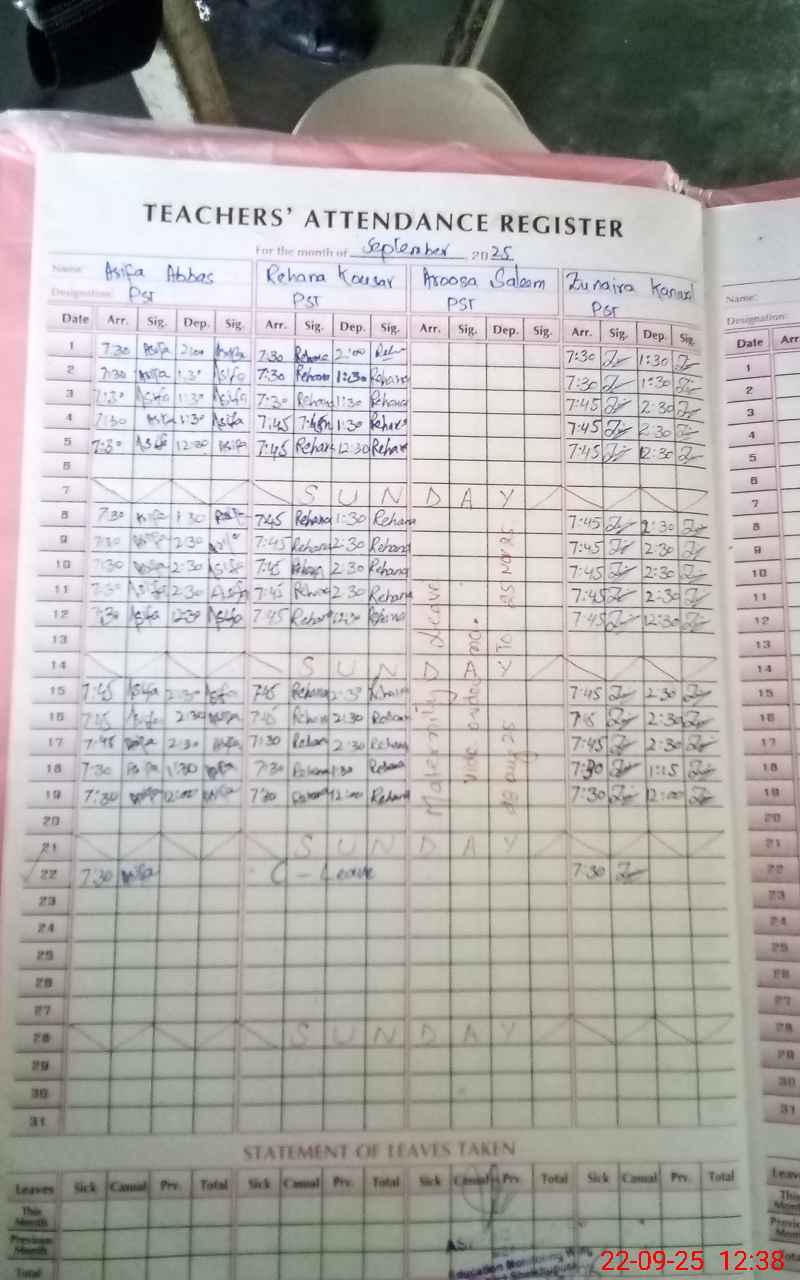 TEACHERS' ATTENDANCE REGISTER
For the month of September 2025
Name: Asifa Abbas Rehana Kousar Aroosa Saleem Zunaira Kanwal
Designation: PST PST PST PST
Date Arr. Sig. Dep. Sig. Arr. Sig. Dep. Sig. Arr. Sig. Dep. Sig. Arr. Sig. Dep. Sig.
1 7:30 Asifa 2:00 Asifa 7:30 Rehana 2:00 7:30 1:30
2 7:30 Asifa 1:30 Asifa 7:30 Rehana 1:30 Rehana 7:30 1:30
3 7:30 Asifa 1:30 Asifa 7:30 Rehana 1:30 Rehana 7:45 2:30
4 7:30 Asifa 1:30 Asifa 7:45 1:30 Rehana 7:45 2:30
5 7:30 Asifa 12:30 Asifa 7:45 Rehana 12:30 Rehana 7:45 12:30
6
7 SUNDAY
8 7:30 Asifa 1:30 7:45 Rehana 1:30 Rehana 7:45 2:30
9 7:30 2:30 7:45 Rehana 2:30 Rehana 7:45 2:30
10 7:30 2:30 Asifa 7:45 Rehana 2:30 Rehana 7:45 2:30
11 7:30 Asifa 2:30 Asifa 7:45 Rehana 2:30 Rehana 7:45 2:30
12 7:30 Asifa 12:30 Asifa 7:45 Rehana 12:30 Rehana 7:45 12:30
13
14 SUNDAY
15 7:45 Asifa 2:30 Asifa 7:45 Rehana 2:30 Rehana 7:45 2:30
16 7:45 Asifa 2:30 7:45 Rehana 2:30 Rehana 2:30
17 7:45 2:30 Asifa 7:30 Rehana 2:30 Rehana 7:45 2:30
18 7:30 1:30 7:30 Rehana 1:30 Rehana 7:30 1:15
19 7:30 12:00 7:30 Rehana 12:00 Rehana 7:30 12:00
20
21 SUNDAY
22 7:30 Asifa C - Leave 7:30
23
24
25
26
27
28 SUNDAY
29
30
31
Maternity Leave
vide order no.
28 aug 25 To 25 Nov 25
STATEMENT OF LEAVES TAKEN
Leaves Sick Casual Prv. Total Sick Casual Prv. Total Sick Casual Prv. Total Sick Casual Prv. Total
This Month
Previous Month
Total
Education Monitoring
Name:
Designation:
Date Arr
1
2
3
4
5
6
7
8
9
10
11
12
13
14
15
16
17
18
19
20
21
22
23
24
25
26
27
28
29
30
31
22-09-25 12:38